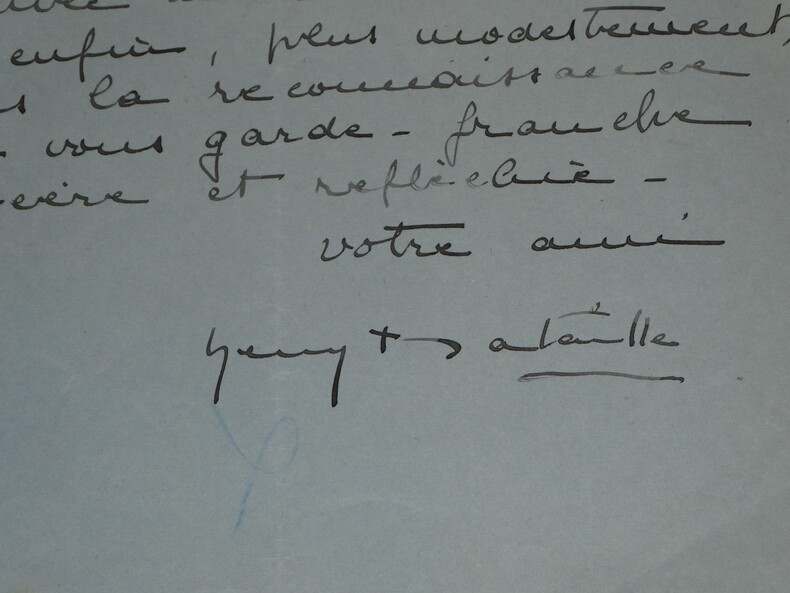 enfin, plus modestement,
la reconnaissance
vous garde - franche
et réfléchie -
votre ami
henry Bataille